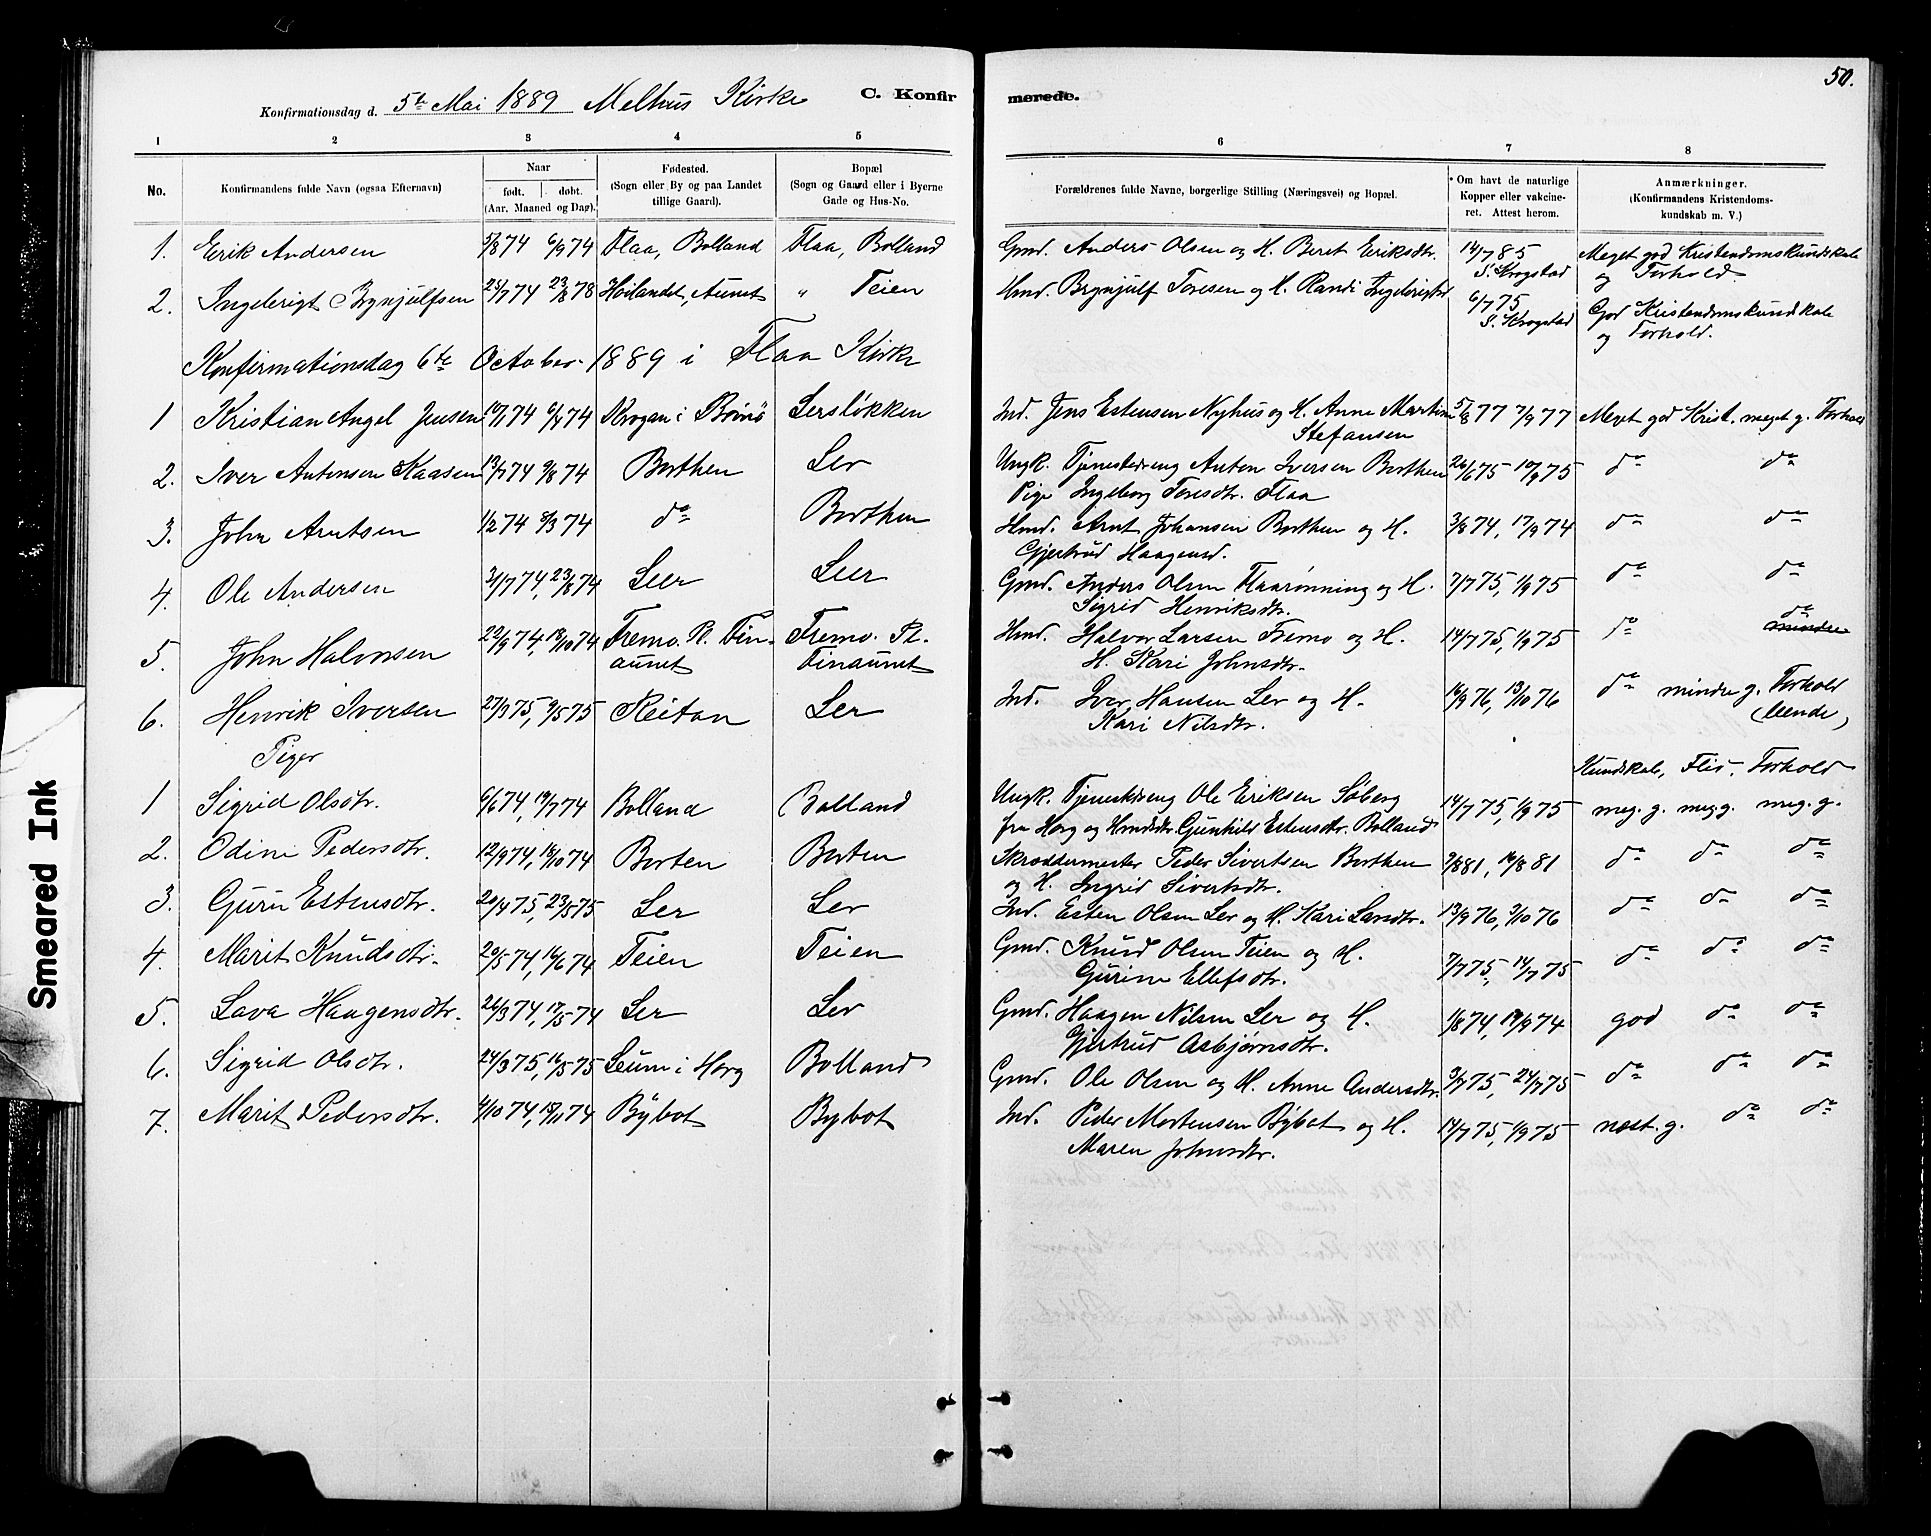 50.
Konfirmationsdag d. 5te Mai 1889 Melhus Kirke C. Konfirmerede.
1 2 3 4 5 6 7 8
No. Konfirmandens fulde Navn (ogsaa Efternavn) Naar født. døbt. (Aar. Maaned og Dag). Fødested. (Sogn eller By og paa Landet tillige Gaard). Bopæl (Sogn og Gaard eller i Byerne Gade og Hus-No. Forældrenes fulde Navne, borgerlige Stilling (Næringsvei) og Bopæl. Om havt de naturlige Kopper eller vakcineret. Attest herom. Anmærkninger. (Konfirmandens Kristendomskundskab m. V.)
1. Erik Andersen 5/8 74 6/9 74 Flaa, Bolland Flaa, Bolland Gmd. Anders Olsen og H. Beret Eriksdtr. 14/7 85 S. Krogstad Meget god Kristendomskundskab og Forhold
2. Ingebrigt Brynjulfsen 25/7 74 23/8 78 Höilandet, Aunet " Teien Hmd. Brynjulf Toresen og H. Randi Ingebrigtsd 6/7 75 S. Krogstad God Kristendomskundskab og Forhold.
Konfirmationsdag 6te October 1889 i Flaa Kirke
1 Kristian Angel Jensen 10/1 74 6/4 74 Krogan i Börsö Lersløkken Ind. Jens Estensen Nyhus og H. Anne Martine Stefansen 5/8 77 7/9 77 Meget god Krist. meget g. Forhold
2. Iver Antonsen Kaasen 13/7 74 9/8 74 Borthen Ler Ungk. Tjenestedreng Anton Iversen Borthen Pige Ingeborg Toresdtr. Flaa 26/6 75 10/9 75 do do
3. John Arntsen 1/2 74 8/3 74 do Borthen Hmd. Arnt Johansen Borthen og H. Gjertrud Haagensd. 3/8 74, 17/9 74 do do
4. Ole Andersen 3/7 74, 23/8 74 Leer Leer Gmd. Anders Olsen Flaarønning og H. Sigrid Henriksdtr. 7/7 75, 1/9 75 do do
5. John Halvorsen 22/9 74, 18/10 74 Fremo. Pl. Finaunet Fremo. Pl. Finaunet Hmd. Halvor Larsen Fremo og H. H. Kari Johnsdtr. 14/7 75, 1/9 75 do do mindre
6. Henrik Iversen 27/3 75, 9/5 75 Reitan Ler Ind. Iver Hansen Ler og H. Kari Nilsdtr. 16/9 76, 13/10 76 do mindre g. Forhold (leende)
Piger Kundskab, Flid, Forhold
1 Sigrid Olsdtr. 6/6 74, 19/7 74 Bolland Bolland Ungk. Tjenestdreng Ole Eriksen Søberg fra Horg og Hmdsdtr. Gunhild Estensdtr. Bolland 14/7 75, 1/9 75 meg. g. meg. g. meg. g.
2. Odine Pedersdtr. 12/9 74, 18/10 74 Borten Borten Skræddermester Peder Sivertsen Borthen og H. Ingrid Sivertsdtr. 9/8 81, 16/8 81 do do do
3. Guru Estensdtr. 20/4 75, 23/5 75 Ler Ler Ind. Esten Olsen Ler og H. Kari Larsdtr. 13/9 76, 3/10 76 do do do
4. Marit Knudsdtr. 20/5 74, 14/6 74 Teien Teien Gmd. Knud Olsen Teien og H. Gurine Ellefsdtr. 7/7 75, 14/7 75 do do do
5. Lava Haagensdtr. 26/3 74, 17/5 74 Ler Ler Gmd. Haagen Nilsen Ler og H. Gjertrud Asbjørnsdtr. 1/8 74, 19/9 74 god do do
6. Sigrid Olsdtr. 24/3 75, 16/5 75 Leum i Horg Bolland Gmd. Ole Olsen og H. Anne Andersdtr. 3/7 75, 24/7 75 do do do
7. Marit Pedersdtr. 4/10 74, 18/11 74 Bÿbot Bybot Ind. Peder Mortensen Bÿbot og H. Maren Johnsdtr. 14/7 75, 1/9 75 næst. g. do do
Smeared Ink